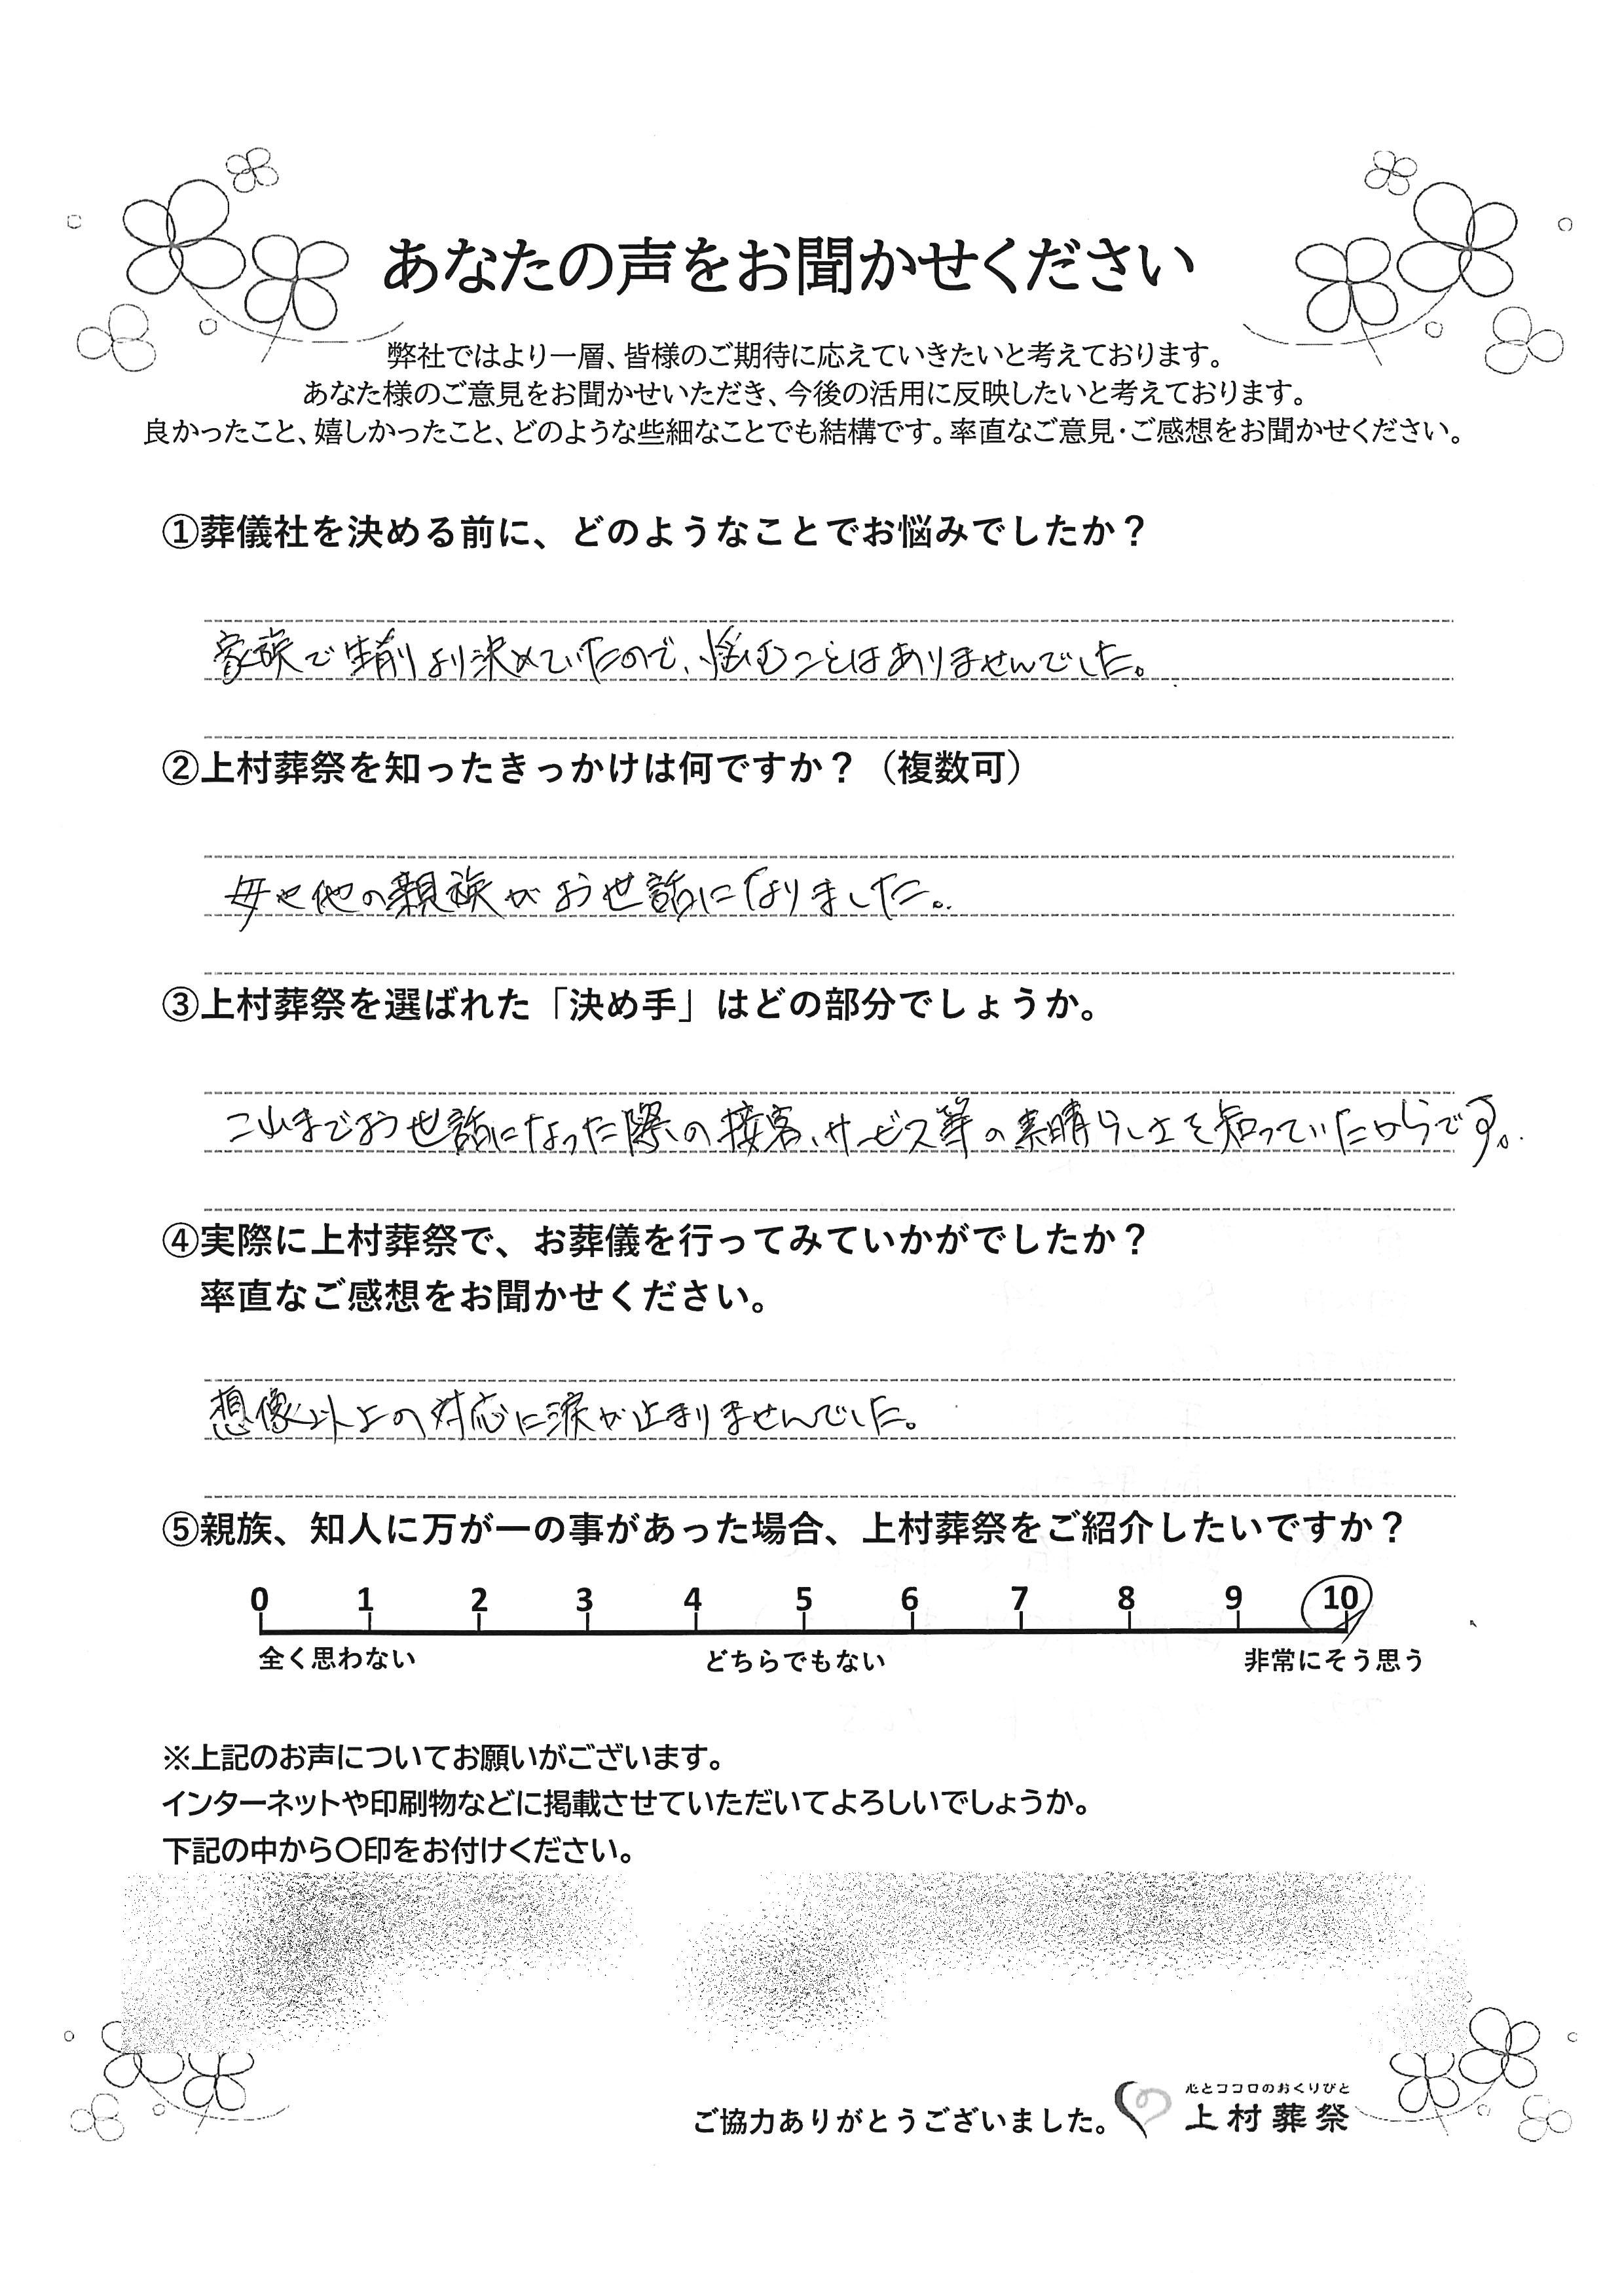 あなたの声をお聞かせください
弊社ではより一層、皆様のご期待に応えていきたいと考えております。
あなた様のご意見をお聞かせいただき、今後の活用に反映したいと考えております。
良かったこと、嬉しかったこと、どのような些細なことでも結構です。率直なご意見・ご感想をお聞かせください。
①葬儀社を決める前に、どのようなことでお悩みでしたか？
家族で生前より決めていたので、悩むことはありませんでした。
②上村葬祭を知ったきっかけは何ですか？（複数可）
母や他の親族がお世話になりました。
③上村葬祭を選ばれた「決め手」はどの部分でしょうか。
これまでお世話になった際の接客、サービス等の素晴らしさを知っていたからです。
④実際に上村葬祭で、お葬儀を行ってみていかがでしたか？
率直なご感想をお聞かせください。
想像以上の対応に涙が止まりませんでした。
⑤親族、知人に万が一の事があった場合、上村葬祭をご紹介したいですか？
0 1 2 3 4 5 6 7 8 9 10
全く思わない どちらでもない 非常にそう思う
※上記のお声についてお願いがございます。
インターネットや印刷物などに掲載させていただいてよろしいでしょうか。
下記の中から〇印をお付けください。
心とココロのおくりびと
ご協力ありがとうございました。 上村葬祭